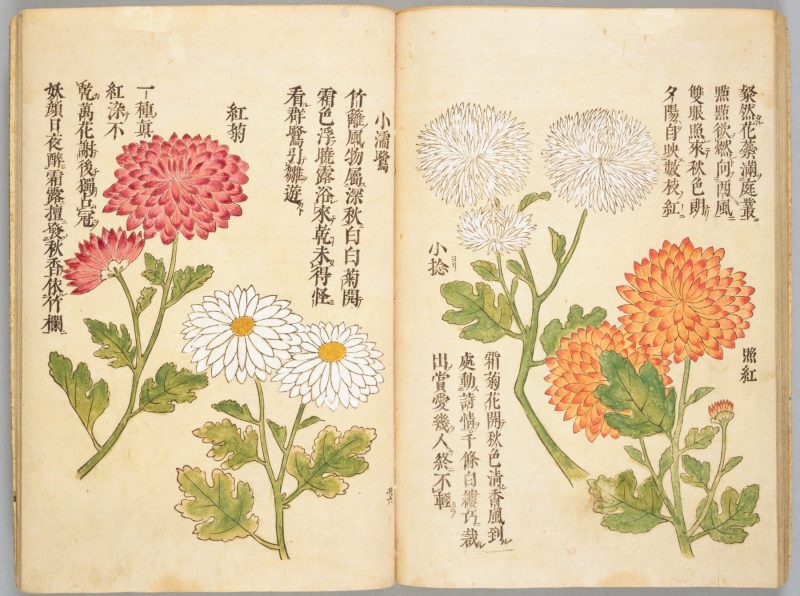 照紅
粲然花蘂滿庭叢
照照欲燃向西風
雙眼照來秋色朗
夕陽自映數枝紅
小捻
霜菊花開秋色清香風到
處動詩情千條白縷巧裁
出賞愛幾人終不輕
小濡鷺
竹籬風物屬深秋白白菊開
霜色浮曉露浴來乾未得怪
看群鷺引雛遊
紅菊
一種真
紅染不
乾萬花謝後獨占冠
妖顏日夜酔霜露擅發秋香依竹欄